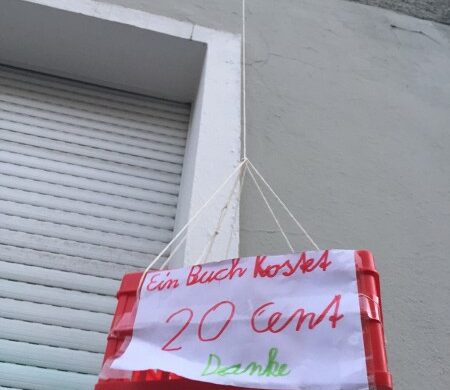 Ein Buch Kostet
20 Cent
Danke